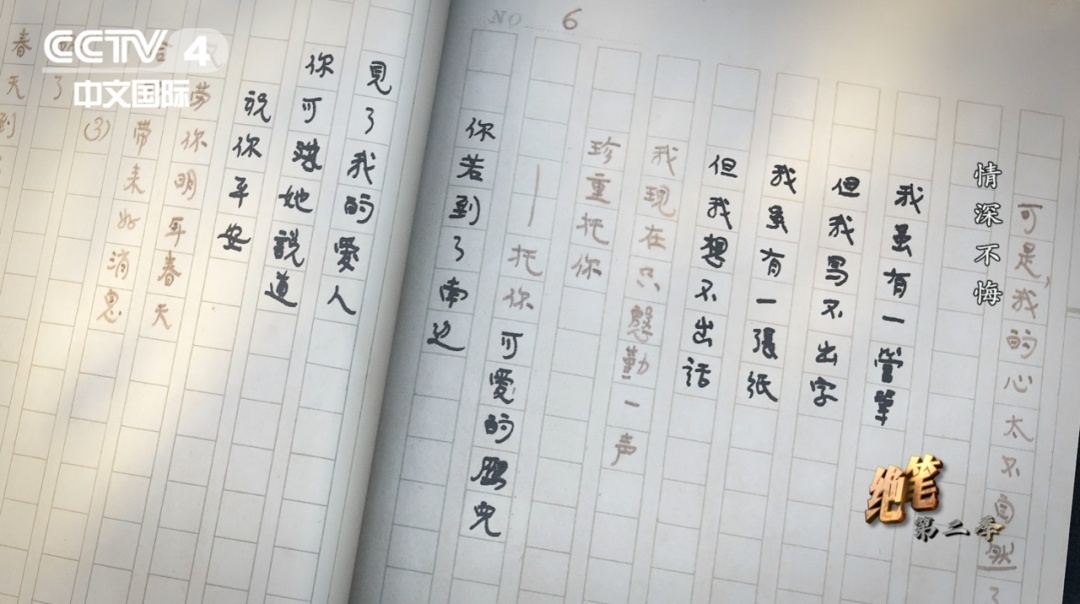 CCTV 4
中文国际
NO. 6
情深不悔
可是，我的心太不自然了
我虽有一管筆
但我写不出字
我虽有一張紙
但我想不出話
我现在只慇勤一声
珍重托你
——托你可愛的雁兒
你若到了南边
見了我的愛人
你可她說道
祝你平安
劳你明年春天
带来好消息
(3)
了
春天到
绝笔
第二季